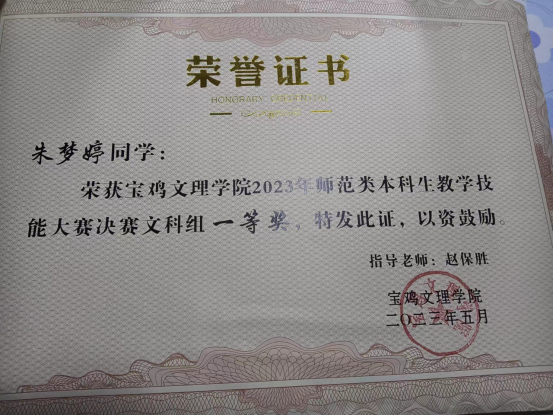 荣誉证书
HONORARY
朱梦婷同学：
荣获宝鸡文理学院2023年师范类本科生教学技
能大赛决赛文科组一等奖，特发此证，以资鼓励。
指导老师：赵保胜
宝鸡文理学院
二〇二三年五月